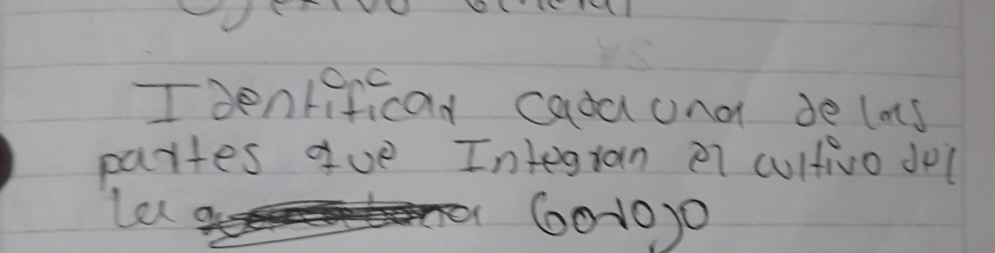 Objetivo General
Identificar cada una de las
partes que Integran el cultivo del
la Gorgojo